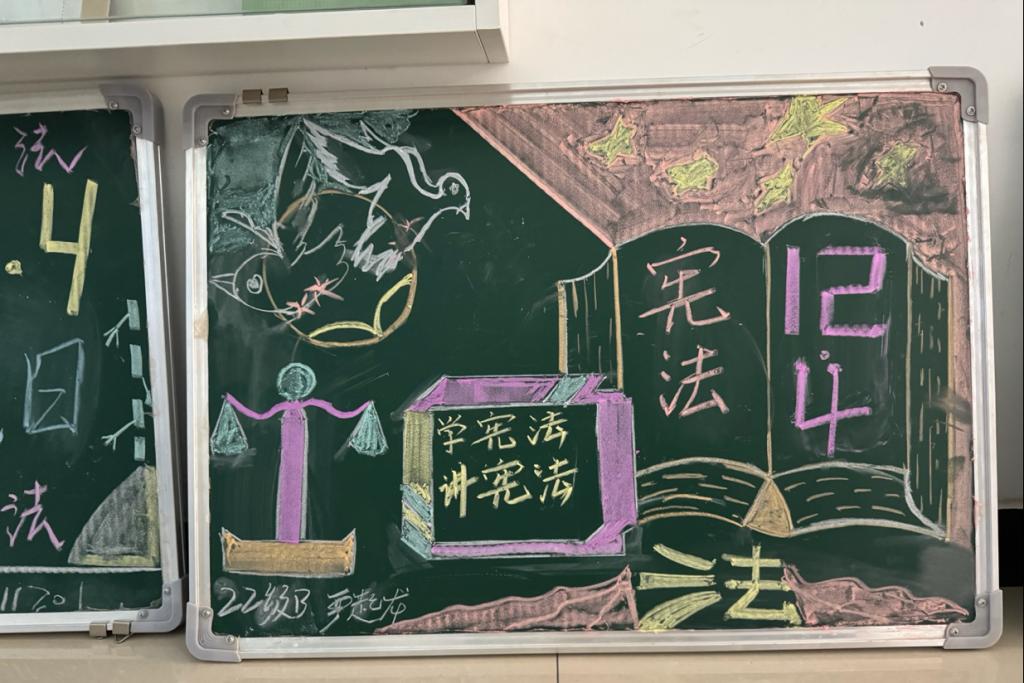 法
4
日
法
宪
法
12
.
4
学宪法
讲宪法
法
22级B